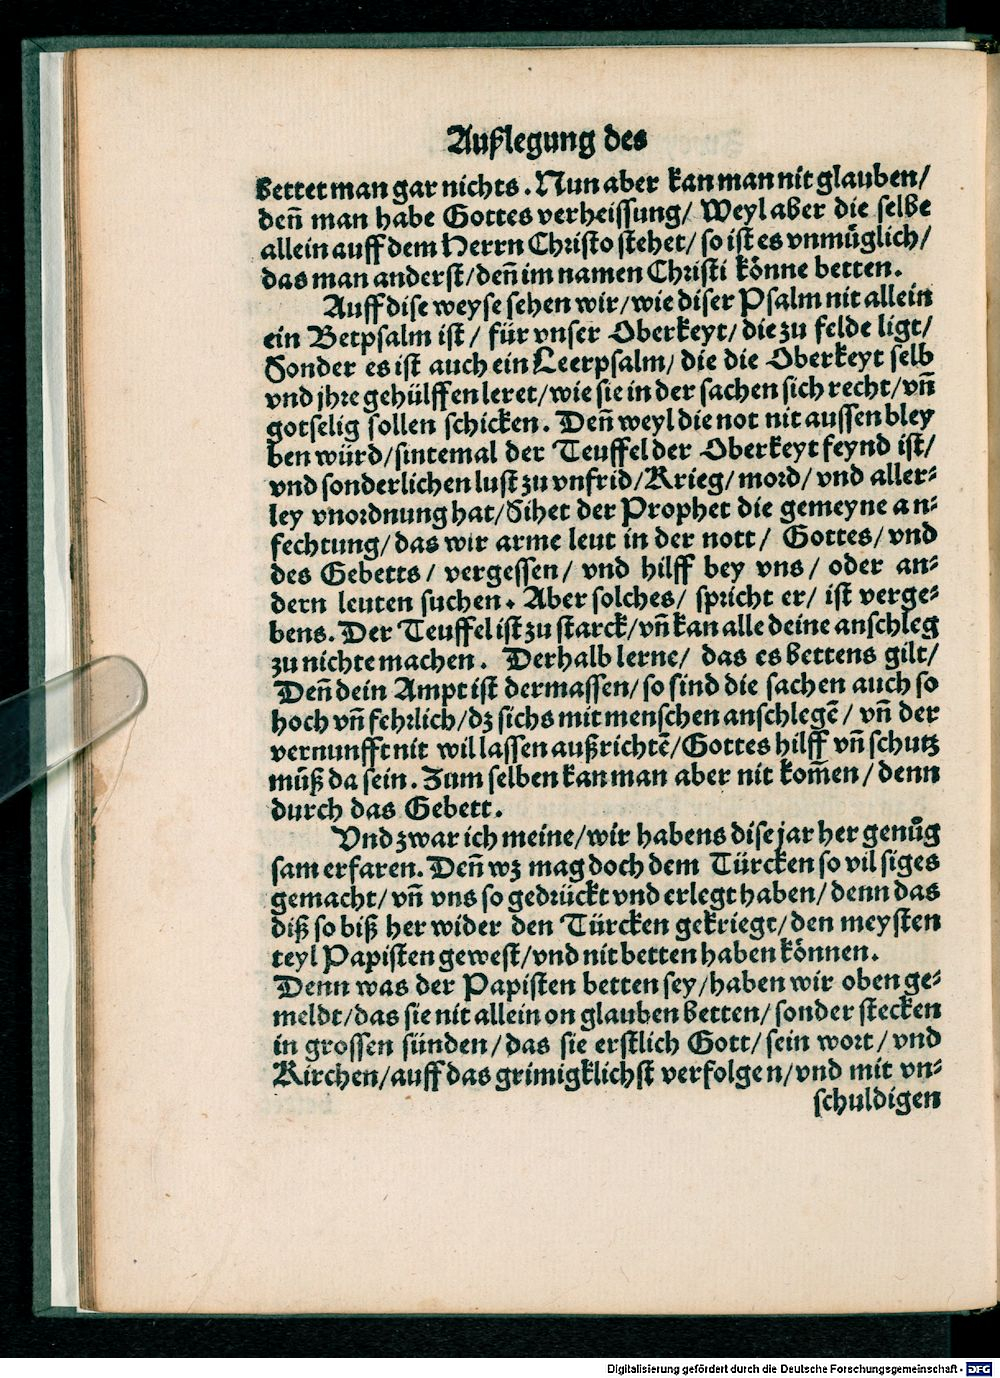 Außlegung des
bettet man gar nichts. Nun aber kan man nit glauben/
deñ man habe Gottes verheissung/ Weyl aber die selbe
allein auff dem Herrn Christo stehet/ so ist es vnmüglich/
das man anderst/deñ im namen Christi könne betten.
Auff dise weyse sehen wir/wie diser Psalm nit allein
ein Betpsalm ist/ für vnser Oberkeyt/ die zu felde ligt/
Sonder es ist auch ein Leerpsalm/ die die Oberkeyt selb
vnd jhre gehülffen leret/wie sie in der sachen sich recht/vñ
gotselig sollen schicken. Deñ weyl die not nit aussen bley
ben würd/sintemal der Teuffel der Oberkeyt feynd ist/
vnd sonderlichen lust zu vnfrid/Krieg/ mord/ vnd aller⸗
ley vnordnung hat/Sihet der Prophet die gemeyne an⸗
fechtung/das wir arme leut in der nott/ Gottes/ vnd
des Gebetts/ vergessen/ vnd hilff bey vns/ oder an⸗
dern leuten suchen. Aber solches/ spricht er/ ist verge⸗
bens. Der Teuffel ist zu starck/vñ kan alle deine anschleg
zu nichte machen. Derhalb lerne/ das es bettens gilt/
Deñ dein Ampt ist dermassen/so sind die sachen auch so
hoch vñ fehrlich/dz sichs mit menschen anschlegẽ/ vñ der
vernunfft nit wil lassen außrichtẽ/Gottes hilff vñ schutz
můß da sein. Zum selben kan man aber nit kom̃en/denn
durch das Gebett.
Vnd zwar ich meine/wir habens dise jar her genůg
sam erfaren. Deñ wz mag doch dem Türcken so vil siges
gemacht/ vñ vns so gedrückt vnd erlegt haben/denn das
diß so biß her wider den Türcken gekriegt/den meysten
teyl Papisten gewest/vnd nit betten haben können.
Denn was der Papisten betten sey/haben wir oben ge⸗
meldt/das sie nit allein on glauben betten/sonder stecken
in grossen sünden/das sie erstlich Gott/sein wort/ vnd
Kirchen/auff das grimigklichst verfolgen/vnd mit vn⸗
schuldigen
Digitalisierung gefördert durch die Deutsche Forschungsgemeinschaft - DFG